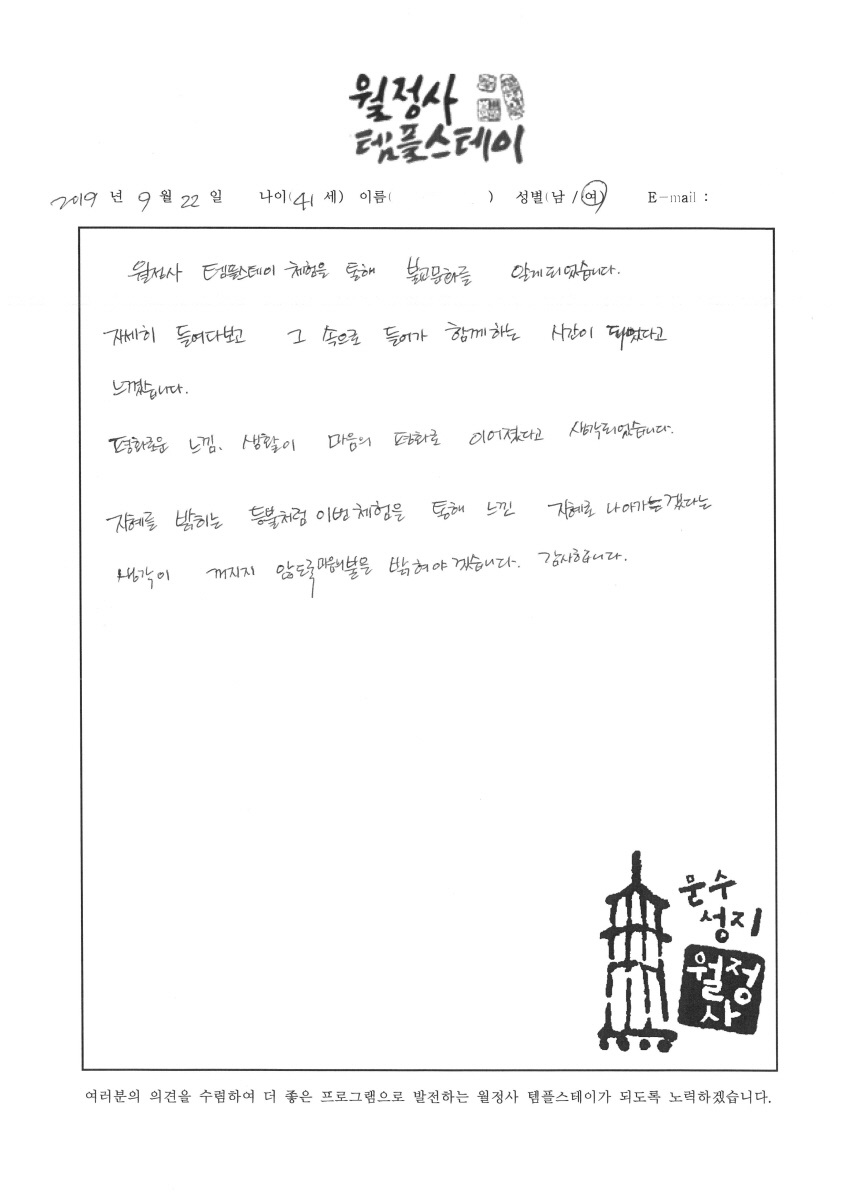 월정사
템플스테이
2019 년 9 월 22 일 나이(41 세) 이름( ) 성별(남 / 여) E-mail :
월정사 템플스테이 체험을 통해 불교문화를 알게되었습니다.
자세히 들여다보고 그 속으로 들어가 함께하는 시간이 되었다고
느꼈습니다.
평화로운 느낌, 생활이 마음의 평화로 이어졌다고 생각되었습니다.
지혜를 밝히는 등불처럼 이번체험을 통해 느낀 지혜로 나아가는겠다는
생각이 꺼지지 않도록 마음의 불을 밝혀야겠습니다. 감사합니다.
문수
성지
월정
사
여러분의 의견을 수렴하여 더 좋은 프로그램으로 발전하는 월정사 템플스테이가 되도록 노력하겠습니다.